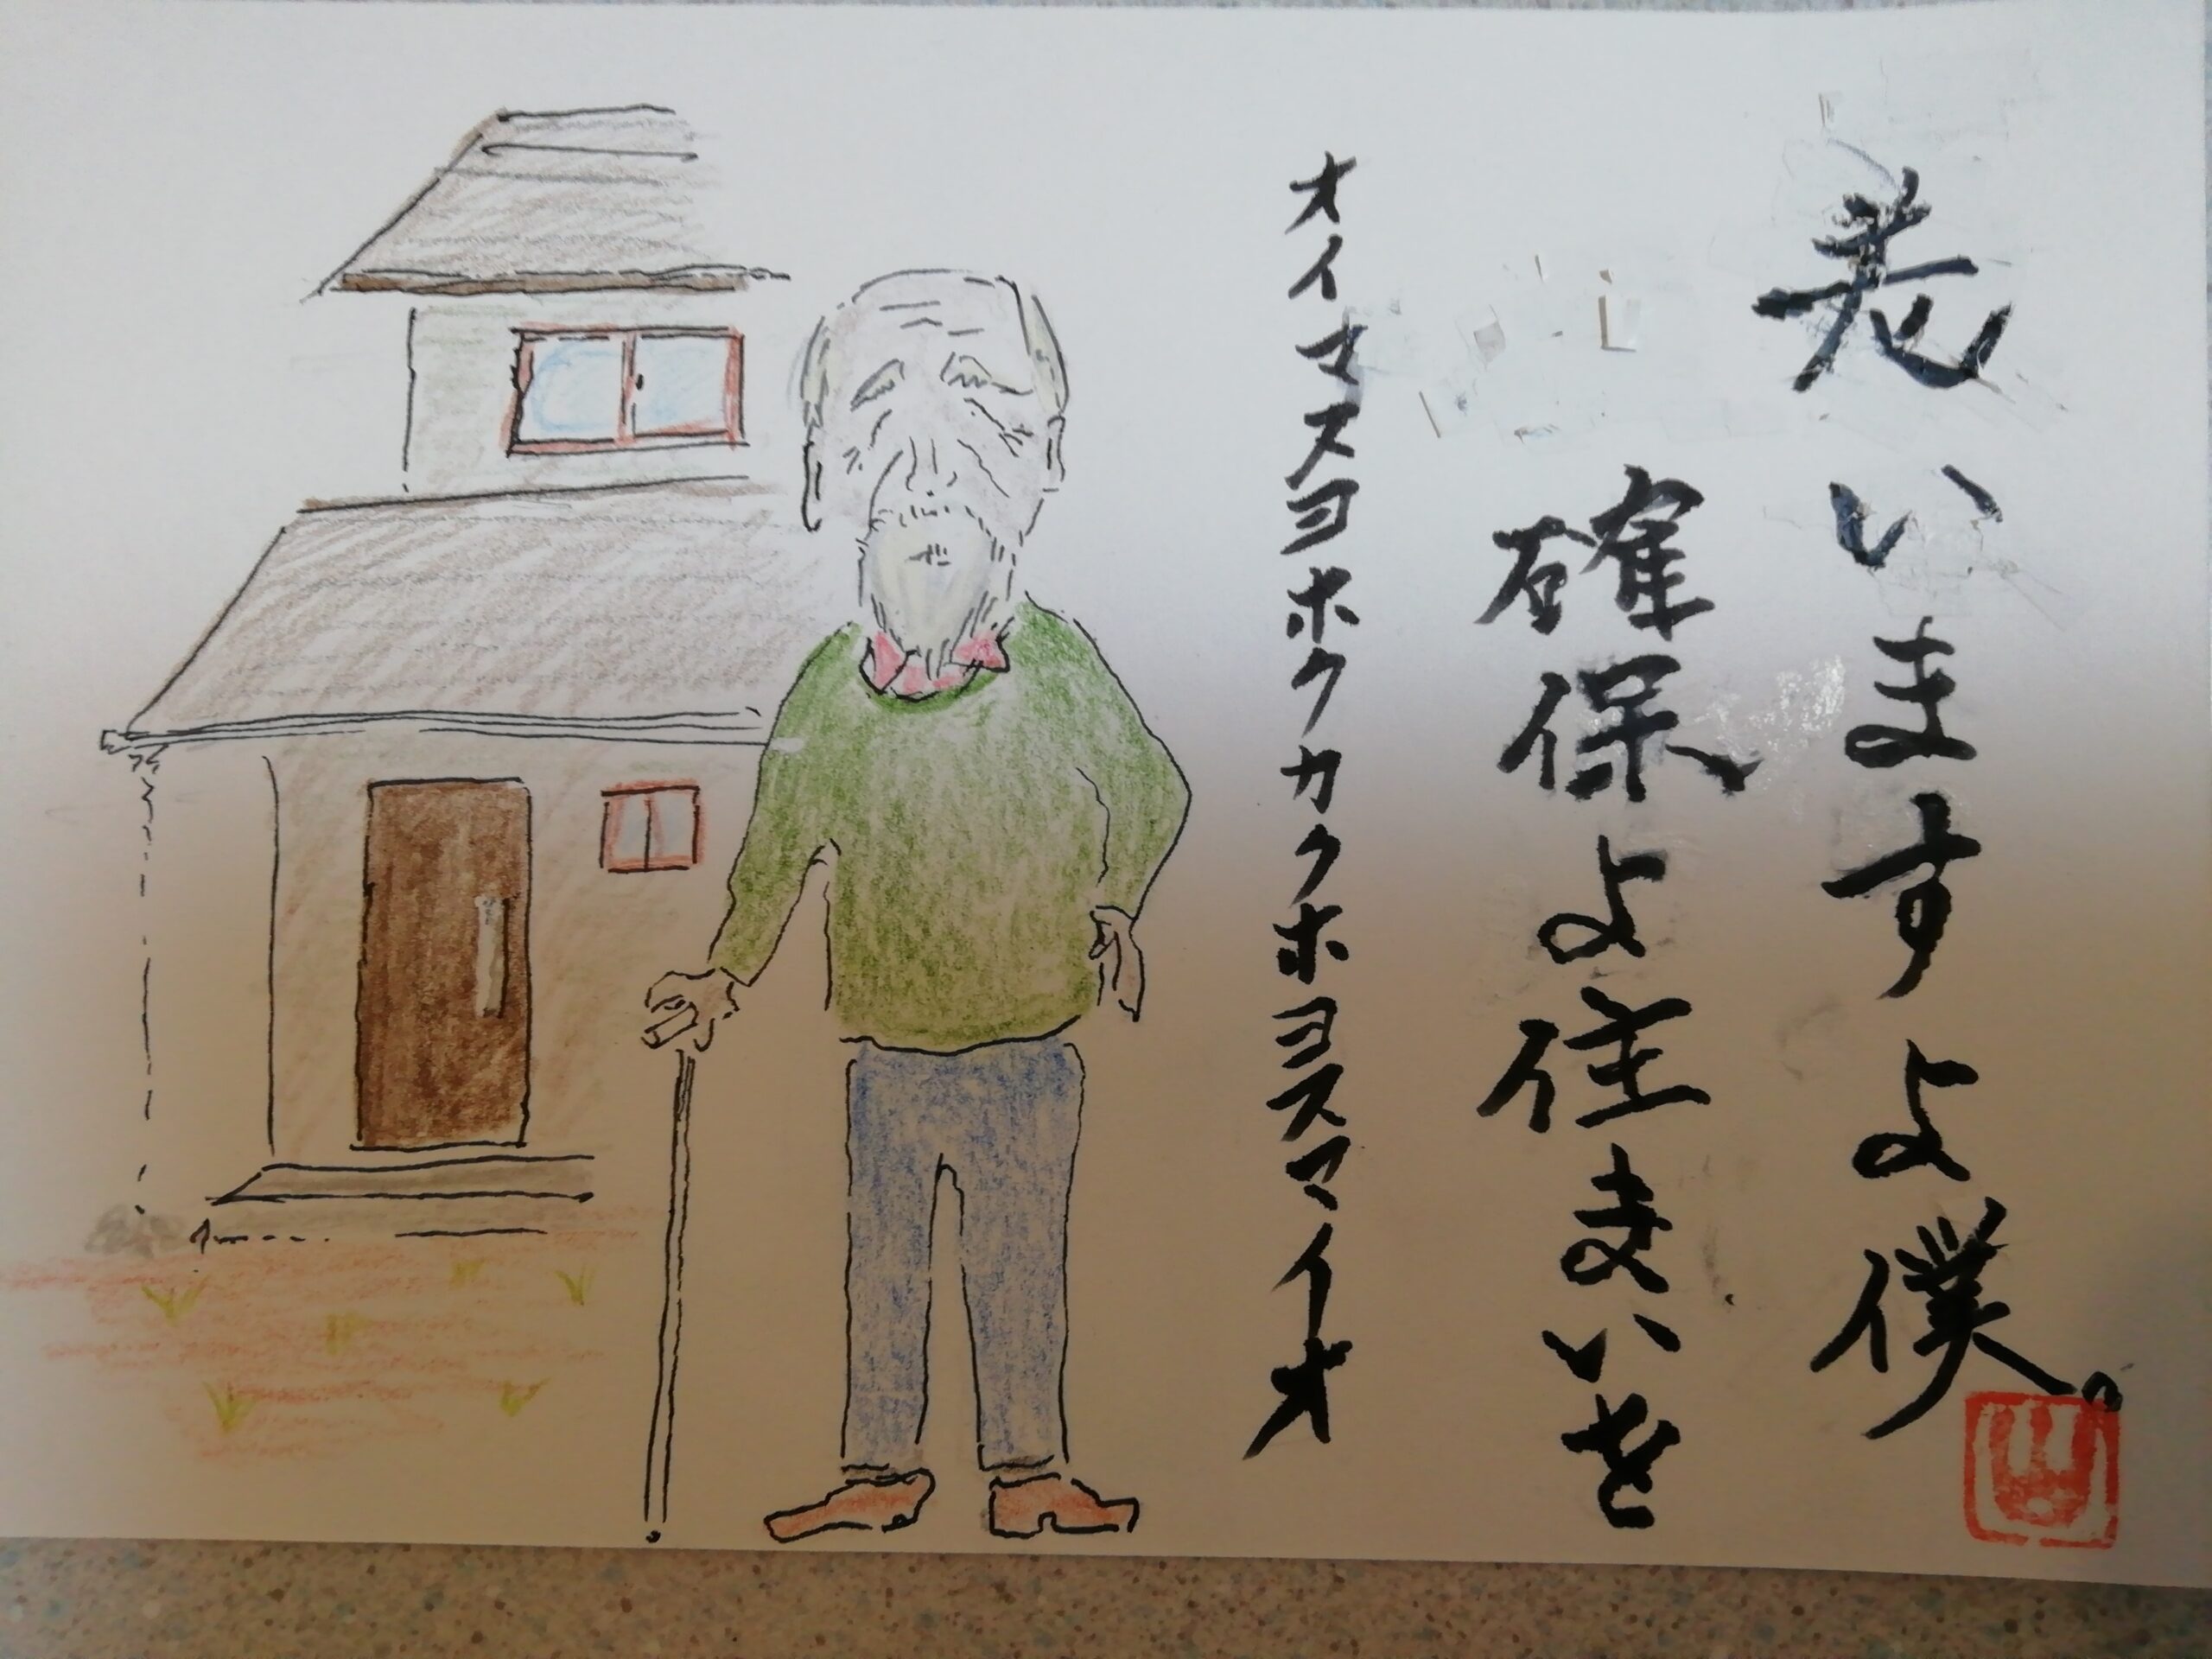 老いますよ僕。
確保よ住まいを
オイマスヨホクカクホヨスマイオ